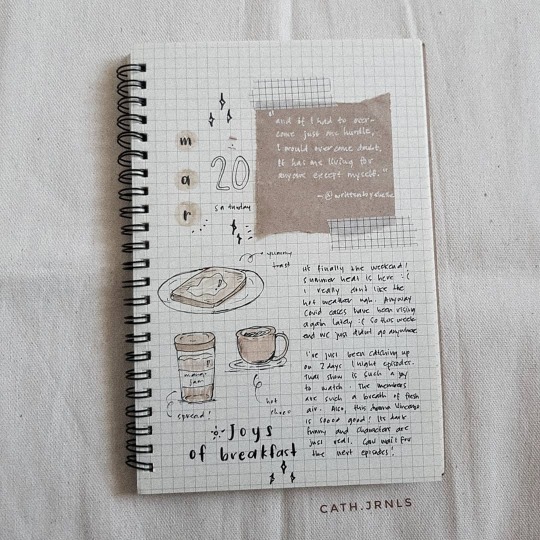 m
a
r
20
saturday
"and if I had to over-
come just one hurdle,
I would overcome doubt,
It has me living for
anyone except myself."
yummy
toast
it's finally the weekend!
summer heat is here :(
i really don't like the
hot weather ugh. Anyway
covid cases have been rising
again lately :( so this week
end we just didn't go anywhere
I've just been catching up
on 2 days 1 night episodes.
that show is such a joy
to watch. The members
are such a breath of fresh
air. Also, this drama Vincenzo
is soooo good! Its dark
funny and characters are
just real. Can't wait for
the next episodes!
jam
spread!
hot
choco
Joys
of breakfast
CATH.JRNLS